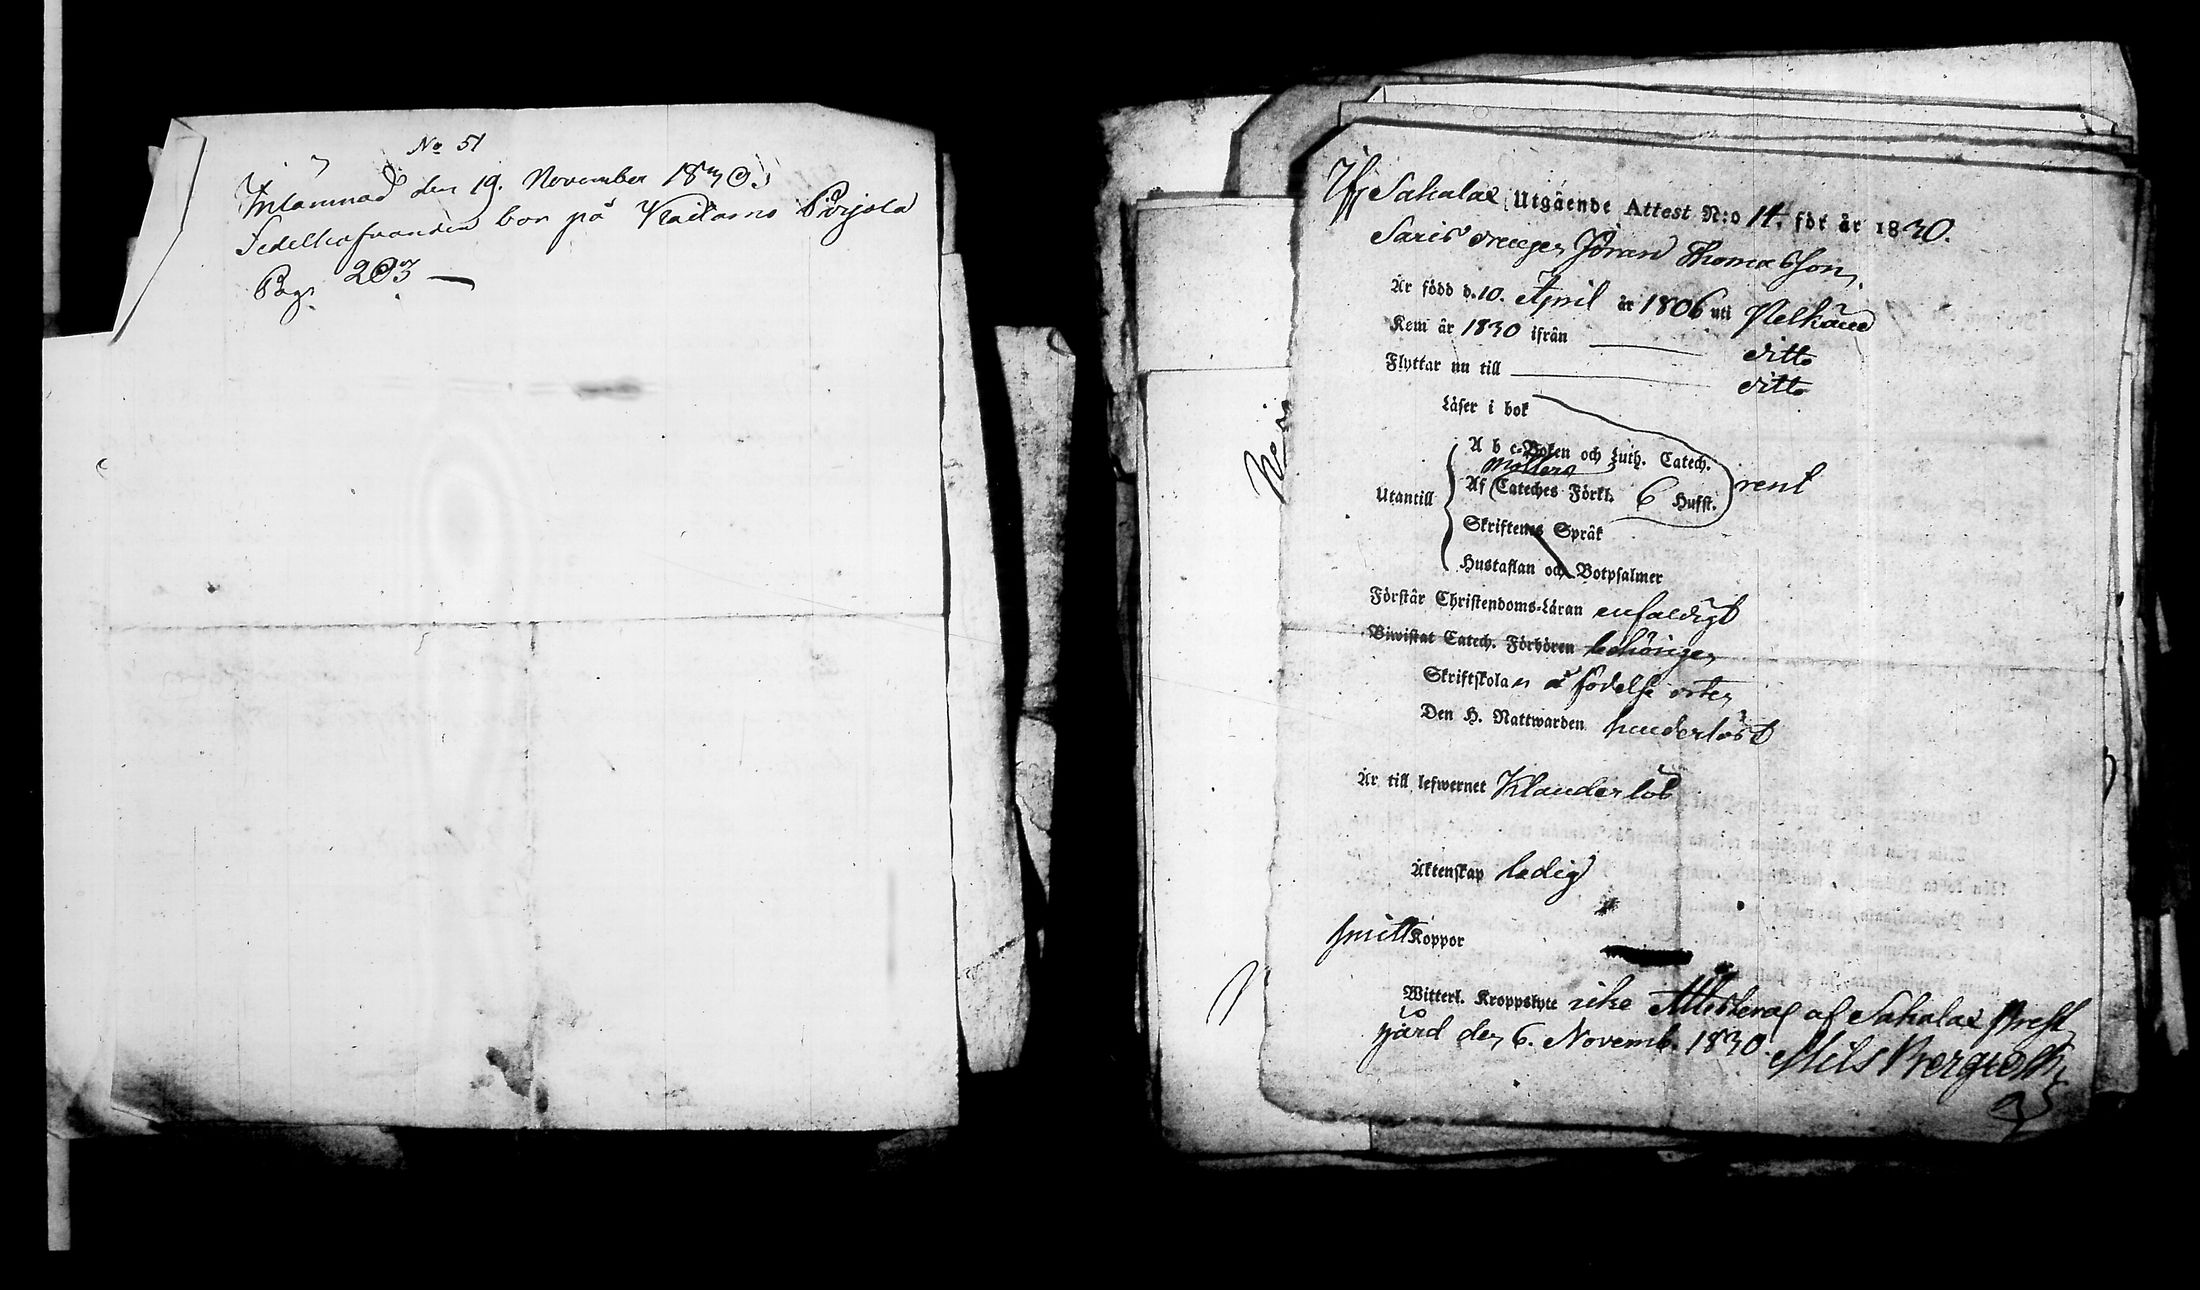 No 51
Inlämnad den 19. November 1830.
Sedelhafvanden bor på Kailamo Pärjolä
Pag. 203 —
Ifr. Sahalax Utgående Attest N:o 14. för år 1830.
Saris drengen Jöran Thomasson,
Är född d. 10. April år 1806 uti Pelkäne
Kom år 1830 ifrån ditto
Flyttar nu till ditto
Läser i bok
A b c-Boken och Luth. Catech.
Möllers
Utantill Af Cateches Förkl. 6 Hufst. rent
Skriftenes Språk
Hustaflan och Botpsalmer
Förstår Christendoms-Läran enfaldigt
Biwistat Catech. Förhören behörigen
Skriftskolan å födelse orten
Den H. Nattwarden hinderlöst
Är till lefwernet Klanderlös
Äktenskap ledig
haft Koppor
Witterl. Kroppslyte icke Attesteras af Sahalax Prest
gård den 6. Novemb. 1830.
Nils Bergroth